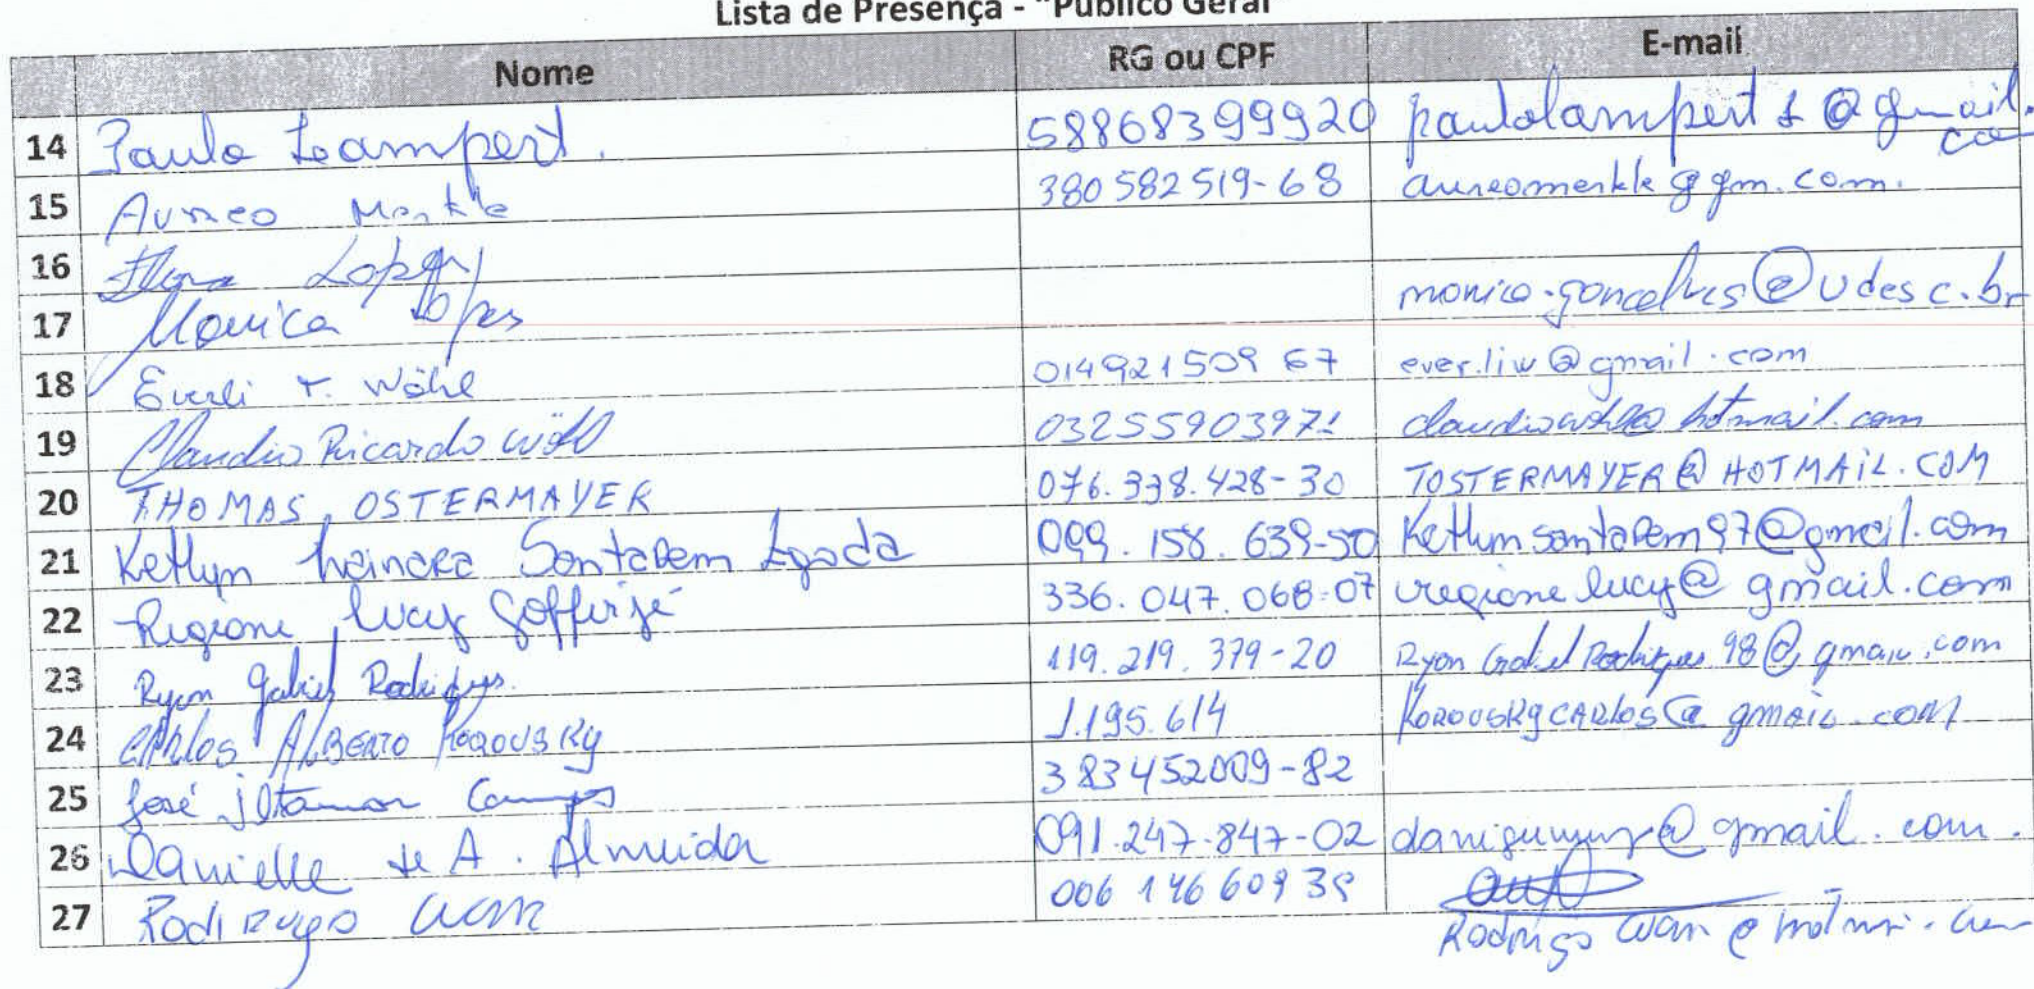 Lista de Presença - "Público Geral"
Nome RG ou CPF E-mail
14 Paulo Lampert. 58868399920 paulolampert1@gmail.com
15 Aureo Merkle 380582519-68 aureomerkle@gm.com.
16 Lopes
17 Monica Lopes monica.goncalves@udesc.br
18 Everli T. Wöhl 01492150967 ever.liw@gmail.com
19 Claudio Ricardo Wöhl 03255903971 claudiowohl@hotmail.com
20 THOMAS OSTERMAYER 076.338.428-30 TOSTERMAYER@HOTMAIL.COM
21 Ketlyn Santarem 099.158.639-50 Ketlynsantarem97@gmail.com
22 Regiane Lucy Sofferjé 336.047.068-07 uregianelucy@gmail.com
23 Ryan Gabriel Rodrigues. 119.219.379-20 Ryan Gabriel Rodrigues 98@gmail.com
24 CARLOS ALBERTO KOROVSKY 1.195.614 KOROVSKYCARLOS@gmail.com
25 José Iltamar Campos 383452009-82
26 Danielle de A. Almeida 091.247.847-02 @gmail.com.
27 Rodrigo Wan 006 146 609 39
Rodrigo wan @